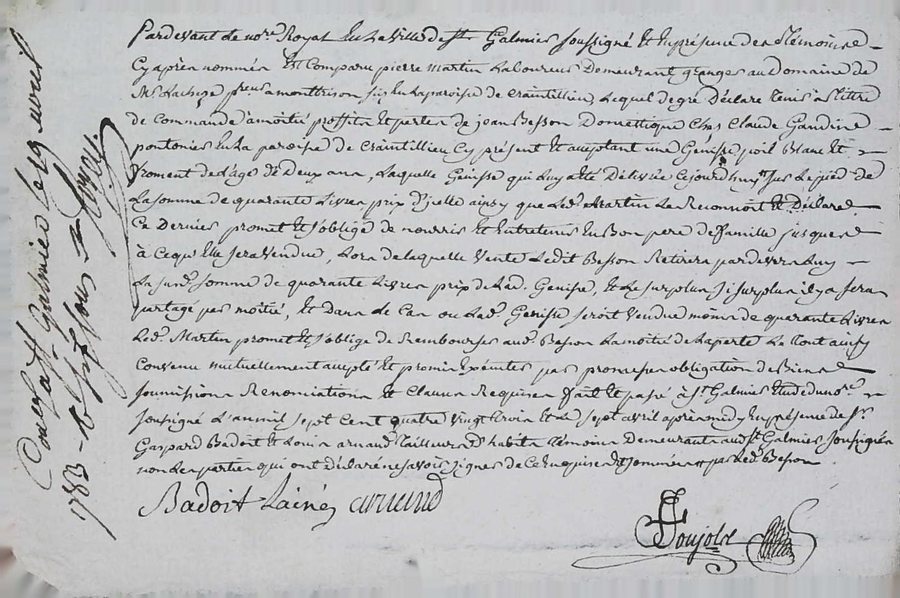 Pardevant le no.re Royal en la ville de St Galmier soussigné et en présence des témoins
Cy après nommés Est Comparu pierre martin Laboureur Demeurant granges au domaine de
Mr Lachèze à montbrison sis en la paroisse de Craintillieu, Lequel de gré Déclare tenir à titre
de Commande à moitié proffits et pertes de jean Besson Domestique Chez Claude
en la paroisse de Craintillieu Cy présent et acceptant une Genisse poil Blanc et
froment de l'age de Deux ans, Laquelle Genisse qui luy a été Délivrée Cejourd'huy sus Le pied de
La somme de quarante Livres prix D'icelle ainsy que Led. Martin Le Reconnoit Et Déclare
Ce Dernier promet et s'oblige de nourrir et Entretenir En Bon pere de famille jusques
à Ce qu'Elle sera Vendue, Lors de laquelle Vente Ledit Besson Retirera pardevers Luy
La susd. somme de quarante Livres prix de Lad. Genisse, et Le surplus si surplus il y a sera
partagé par moitié, Et Dans Le Cas ou Lad. Genisse seroit Vendue moins de quarante Livres
Led. Martin promet et s'oblige de Rembourser aud. Besson La moitié de La perte Le tout ainsy
Convenu mutuellement accepté et promis Exécuter par promesse obligation de Biens
soumission Renonciations et Clauses Requises fait et passé à St Galmier Etude du no.re
soussigné L'an mil sept Cent quatre vingt trois et Le sept avril après midy En présence de Sr
Gaspard Badoit et Louis arnaud Tailleur habits témoins Demeurants aud. St Galmier soussignés
non Les parties qui ont déclaré ne savoir signer de Ce Enquises et sommées par Led. Besson
Badoit Lainé arnaud
Soujolre
Con.lé à St Galmier le 19 avril
1783